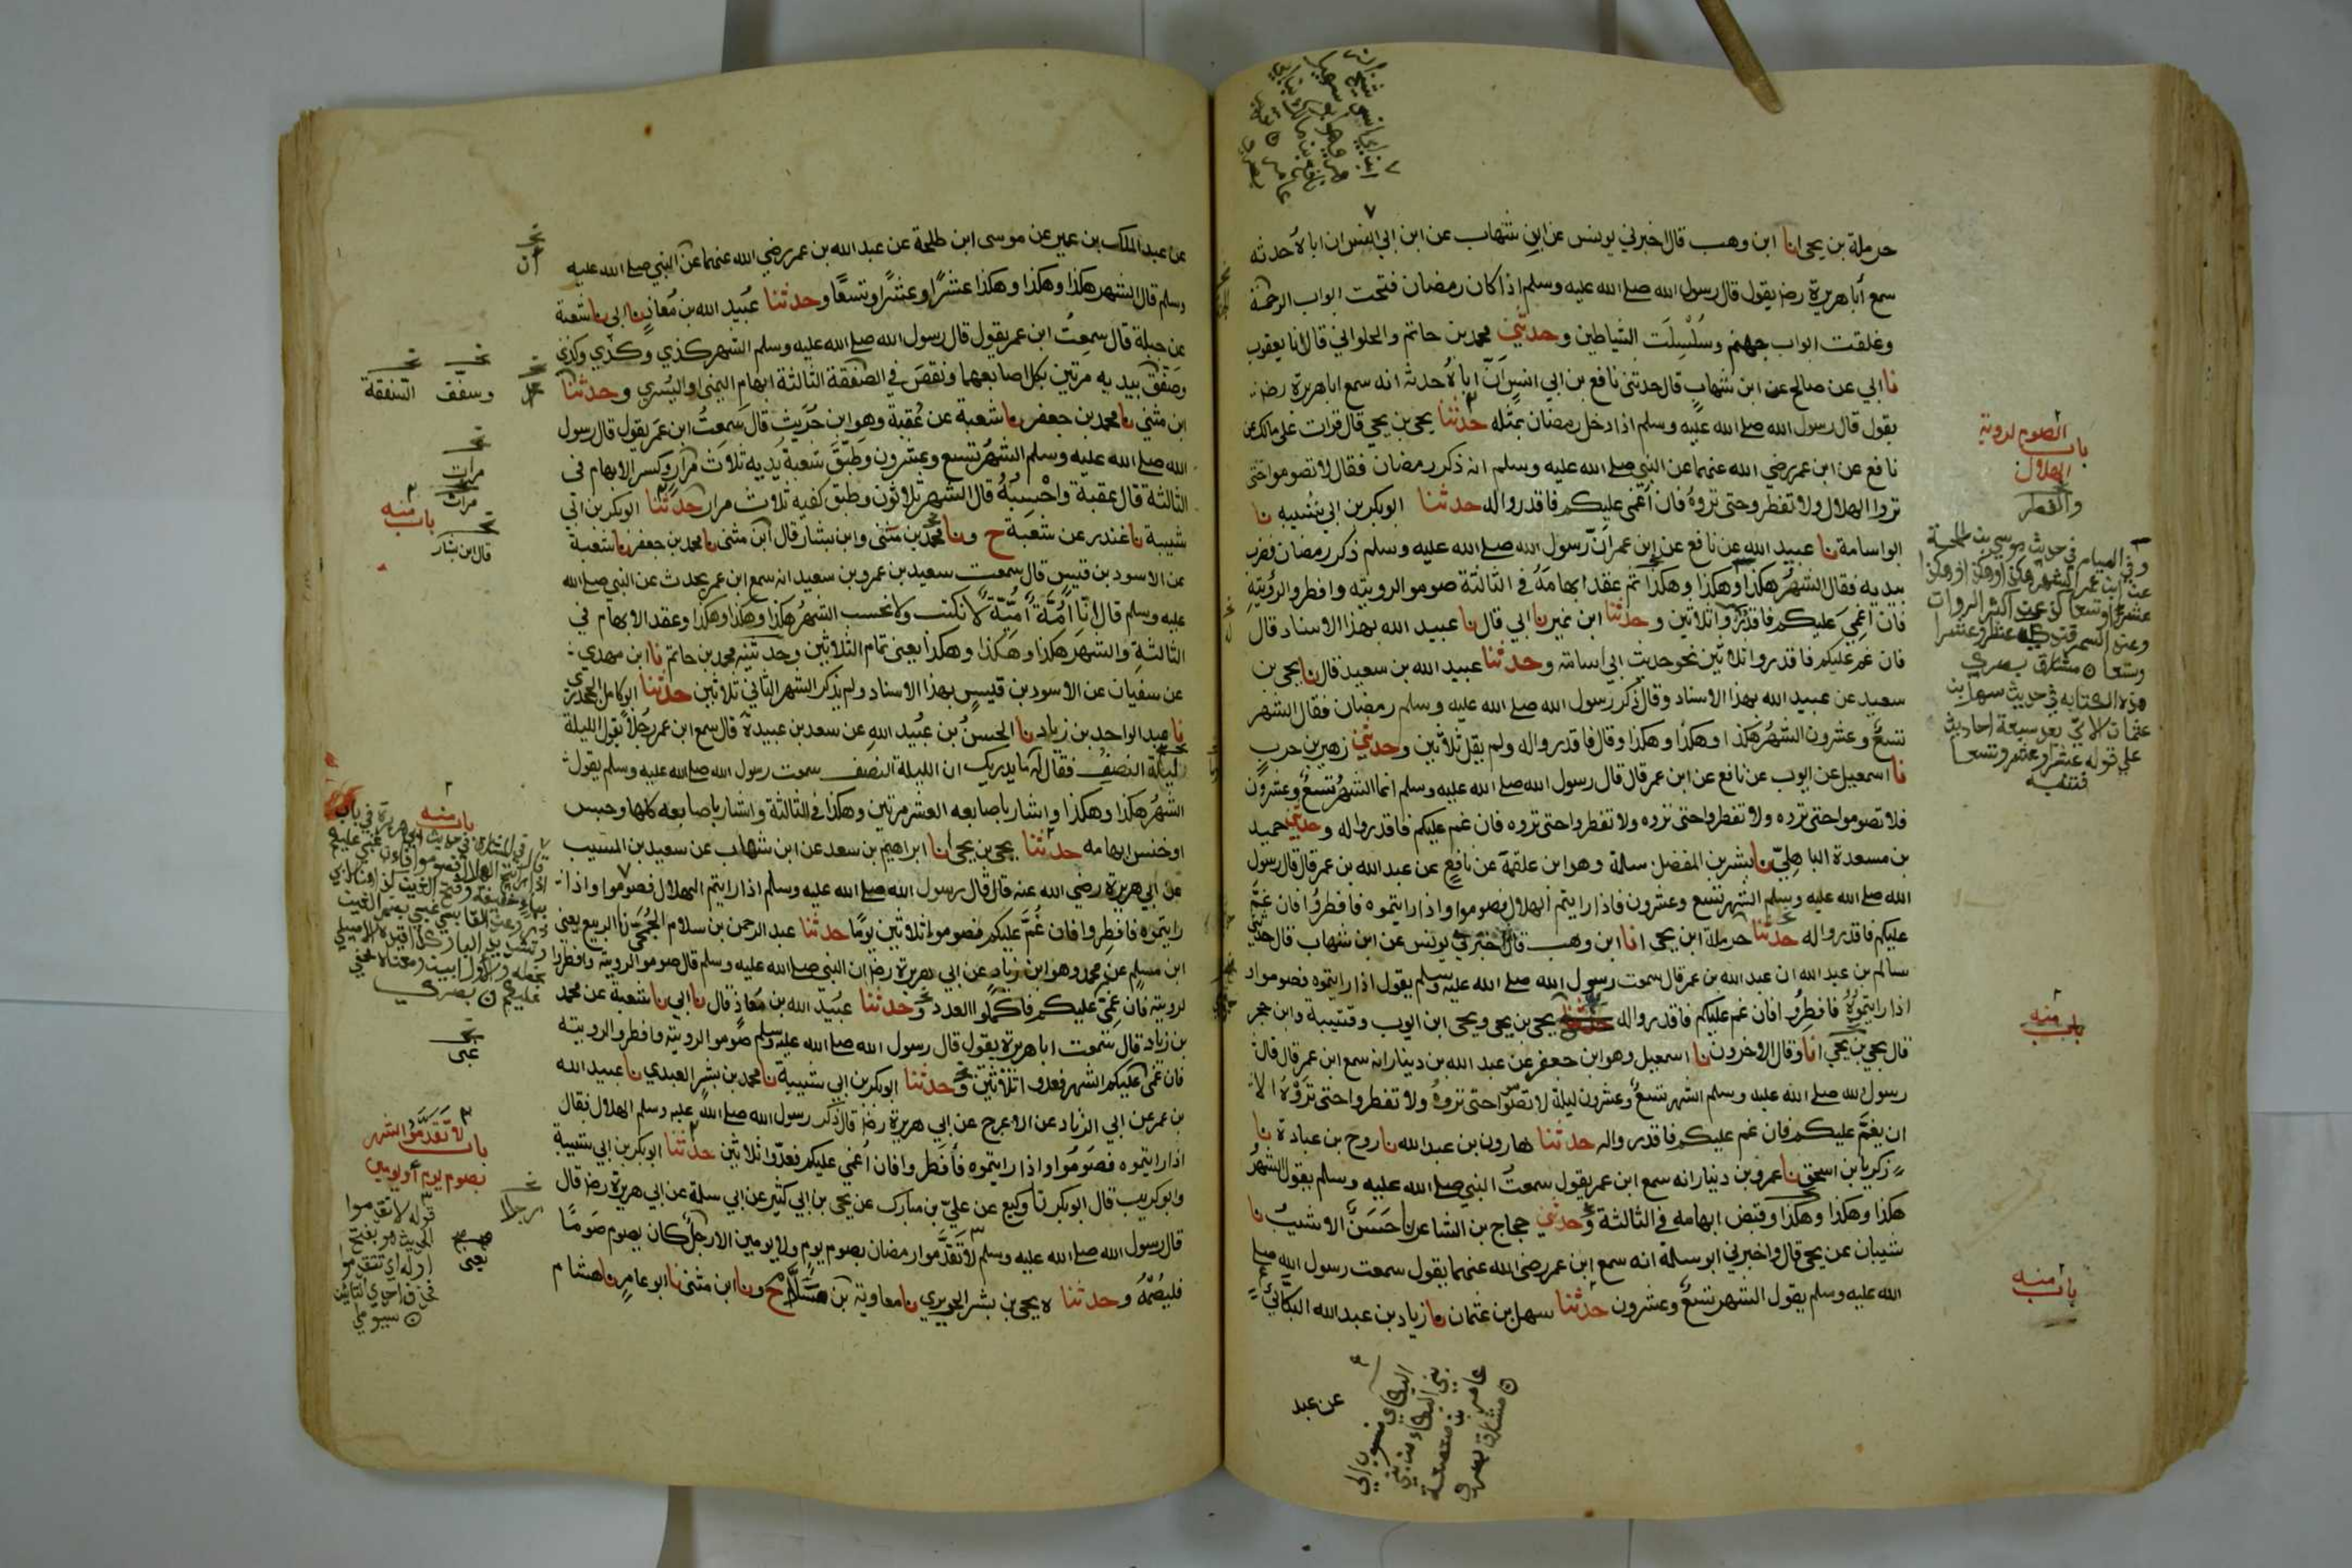 حرملة بن يحيى انا ابن وهب قال اخبرني يونس عن ابن شهاب عن ابن ابي انس ان اباه حدثه
سمع أبا هريرة رضـ يقول قال رسول الله صلى الله عليه وسلم اذا كان رمضان فتحت ابواب الرحمة
وغلقت ابواب جهنم وسُلْسِلَت الشياطين وحدثني محمد بن حاتم والحلواني قالا نا يعقوب
نا ابي عن صالح عن ابن شهاب قال حدثني نافع بن ابي انس أنّ اباه حدثه انه سمع ابا هريرة رضـ
يقول قال رسول الله صلى الله عليه وسلم اذا دخل رمضان بمثله حدثنا يحيى بن يحيى قال قرات على مالك عن
نافع عن ابن عمر رضي الله عنهما عن النبي صلى الله عليه وسلم انه ذكر رمضان فقال لا تصوموا حتى
تروا الهلال ولا تفطروا حتى تروهُ فان أغمى عليكم فاقدروا له حدثنا ابو بكر بن ابي شيبه نا
ابو اسامة نا عبيد الله عن نافع عن ابن عمر انّ رسول الله صلى الله عليه وسلم ذكر رمضان فضرب
بيديه فقال الشهرُ هكذا وهكذا وهكذا ثم عقد ابهامَهُ في الثالثة صوموا لرويته وافطروا لرؤيتِهِ
فان اغمي عليكم فاقدُرُوا ثلاثين وحدثنا ابن نمير نا ابي قال نا عبيد الله بهذا الاسناد قال
فان غم عليكم فاقدروا ثلاثين نحو حديث ابي اسامة وحدثنا عبيد الله بن سعيد قال نا يحيى بن
سعيد عن عبيد الله بهذا الاسناد وقال ذكر رسول الله صلى الله عليه وسلم رمضان فقال الشهر
تسعٌ وعشرون الشهرُ هكذا وهكذا وهكذا وقال فاقدروا له ولم يقل ثلاثين وحدثني زهير بن حرب
نا اسمعيل عن ايوب عن نافع عن ابن عمر قال قال رسول الله صلى الله عليه وسلم انما الشهرُ تسعٌ وعشرون
فلا تصوموا حتى تروه ولا تفطروا حتى تروه ولا تفطروا حتى تروه فان غم عليكم فاقدروا له وحدثني حميد
بن مسعدة الباهليّ نا بشر بن المفضل سلمة وهو ابن علقمة عن نافعٍ عن عبد الله بن عمر قال قال رسول
الله صلى الله عليه وسلم الشهر تسع وعشرون فاذا رايتم الهلال فصوموا واذا رايتموه فافطرُوا فان غمّ
عليكم فاقدروا له حدثنا حرملة ابن يحيى انا ابن وهب قال اخبرني يونس عن ابن شهاب قال حدثني
سالم بن عبد الله ان عبد الله بن عمر قال سمعت رسول الله صلى الله عليه وسلم يقول اذا رايتموه فصوموا و
اذا رايتموهُ فافطِرُوا فان غم عليكم فاقدروا له حدثنا يحيى بن يحيى ويحيى ابن ايوب وقتيبة وابن حجر
قال يحيى بن يحيى انا وقال الاخرون نا اسمعيل وهو ابن جعفر عن عبد الله بن دينار انه سمع ابن عمر قال قال
رسول الله صلى الله عليه وسلم الشهر تسعٌ وعشرون ليلة لا تصوموا حتى تروهُ ولا تفطروا حتى تروْهُ الا
ان يغمَّ عليكم فان غم عليكم فاقدروا له حدثنا هارون بن عبد الله نا روح بن عبادة نا
زكريا بن اسحق نا عمرو بن دينار انه سمع ابن عمر يقول سمعتُ النبي صلى الله عليه وسلم يقول الشهرُ
هكذا وهكذا وهكذا وقبض ابهامه في الثالثة وحدثني حجاج بن الشاعر نا حَسَنٌ الاشيبُ نا
شيبان عن يحيى قال واخبرني ابو سلمة انه سمع ابن عمر رضى الله عنهما يقول سمعت رسول الله صلى
الله عليه وسلم يقول الشهر تسعٌ وعشرون حدثنا سهل بن عثمان نا زياد بن عبد الله البكائيّ
عن عبد
باب الصوم لروية
الهلال
والفطر
باب منه
باب منه
عن عبد الملك بن عمير عن موسى ابن طلحة عن عبد الله بن عمر رضي الله عنهما عن النبي صلى الله عليه
وسلم قال الشهر هكذا وهكذا وهكذا عشرًا وعشرًا وتسعًا وحدثنا عُبيد الله بن مُعاذٍ نا ابي نا شعبة
عن جبلة قال سمعتُ ابن عمر يقول قال رسول الله صلى الله عليه وسلم الشهر كذي وكذي وكذي
وصَفّق بيديه مرتين بكل اصابعهما ونقصَ في الصفقة الثالثة ابهام اليمنى او اليسرى وحدثنا
ابن مثنى نا محمد بن جعفر نا شعبة عن عُقبة وهو ابن حُرَيث قال سمعتُ ابن عمر يقول قال رسول
الله صلى الله عليه وسلم الشهرُ تسع وعشرون وطَبّقَ شعبةُ يديه ثلاث مرارٍ وكسر الابهام في
الثالثة قال عقبة واحْسِبُهُ قال الشهر ثلاثون وطبق كفيه ثلاث مرار حدثنا ابو بكر بن ابي
شيبة نا غندر عن شعبة ح ونا محمد بن مثنى وابن بشار قال ابن مثنى نا محمد بن جعفر نا شعبة
عن الاسود بن قيسٍ قال سمعت سعيد بن عمرو بن سعيد انه سمع ابن عمر يحدث عن النبي صلى الله
عليه وسلم قال انّا اُمَّةٌ اُمِّيَّةٌ لا نكتب ولا نحسب الشهرُ هكذا وهكذا وهكذا وعقد الابهام في
الثالثةِ والشهرَ هكذا وهكذا وهكذا يعنى تمام الثلاثين وحدثنيه محمد بن حاتم نا ابن مهدي
عن سفيان عن الاسود بن قيسٍ بهذا الاسناد ولم يذكر الشهر الثاني ثلاثين حدثنا ابو كامل الجحدري
نا عبد الواحد بن زياد نا الحسنُ بن عُبيد اللهِ عن سعد بن عبيدة قال سمع ابن عمر رجُلاً يقول الليلة
ليلة النصفِ فقال له ما يدريك ان الليلة النصف سمعت رسول الله صلى الله عليه وسلم يقول
الشهرُ هكذا وهكذا واشار باصابعه العشر مرتين وهكذا في الثالثة واشار باصابعه كلها وحبس
او خنس ابهامه حدثنا يحيى بن يحيى انا ابراهيم بن سعد عن ابن شهاب عن سعيد بن المسيب
عن ابي هريرة رضي الله عنه قال قال رسول الله صلى الله عليه وسلم اذا رايتم الهلال فصوموا واذا
رايتموه فافطِروا فان غُمَّ عليكم فصوموا ثلاثين يومًا حدثنا عبد الرحمن بن سلام الجُمَحيّ نا الربيع يعنى
ابن مسلمٍ عن محمد وهو ابن زيادٍ عن ابي هريرة رضـ ان النبي صلى الله عليه وسلم قال صوموا لرويته وافطروا
لرويته فان غمّى عليكم فاكملوا العدد وحدثنا عبيد الله بن معاذٍ قال نا ابي نا شعبة عن محمد
بن زياد قال سمعت ابا هريرة يقول قال رسول الله صلى الله عليه وسلم صوموا لرويته وافطروا لرويته
فان غمى عليكم الشهر فعدوا ثلاثين وحدثنا ابو بكر بن ابي شيبة نا محمد بن بشر العبدي نا عبيد الله
بن عمر عن ابي الزناد عن الاعرج عن ابي هريرة رضـ قال ذكر رسول الله صلى الله عليه وسلم الهلال فقال
اذا رايتموه فصوموا واذا رايتموه فأفطروا فان أغمي عليكم فعدّوا ثلاثين حدثنا ابو بكر بن ابي شيبة
وابو كريب قال ابو بكر نا وكيع عن عليّ بن مبارك عن يحيى بن ابي كثير عن ابي سلمة عن ابي هريرة رضـ قال
قال رسول الله صلى الله عليه وسلم لا تَقدَّموا رمضان بصوم يومٍ ولا يومين الا رجلٌ كان يصوم صومًا
فليصُمْهُ وحدثنا ه يحيى بن بشر الحريري نا معاوية بن سلّام ح ونا ابن مثنى نا ابو عامرٍ نا هشام
وسفق
السفقة
مرات
باب منه
قال ابن بشار
باب منه
غمى
باب لا تَقدَّمُوا الشهر
بصوم يوم او يومين
رجلا
يعنى
قوله لا تقدموا
الحديث هو بفتح
اوله اي تتقدموا
فحذف احدى التاءين
سيوطي